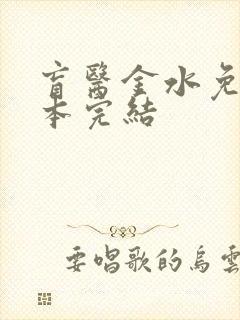 盲醫金水免
本完結
要唱歌的烏雲